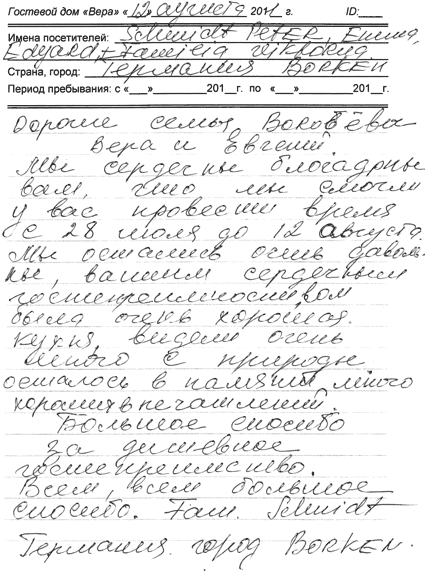 Гостевой дом «Вера» «12» августа 2011 г. ID:
Имена посетителей: Schmidt Peter, Emma,
Eduard + Familia
Страна, город: Германия Borken
Период пребывания: с «__» 201_г. по «__» 201_г.
Дорогие семья
Вера и Евгений.
Мы сердечны благадрны
вам, что мы смогли
у вас провести время
с 28 июля до 12 августа.
Мы остались очень даволь-
ны, вашим сердечным
гостеприимноством
была очень хорошая.
кухня, видели очень
много с природы
осталось в памяти много
хороших впечатлений.
Большое спосибо
за дишевное
гостеприимство.
Всем, всем большое
спосибо. Fam. Schmidt
Германия. город Borken.